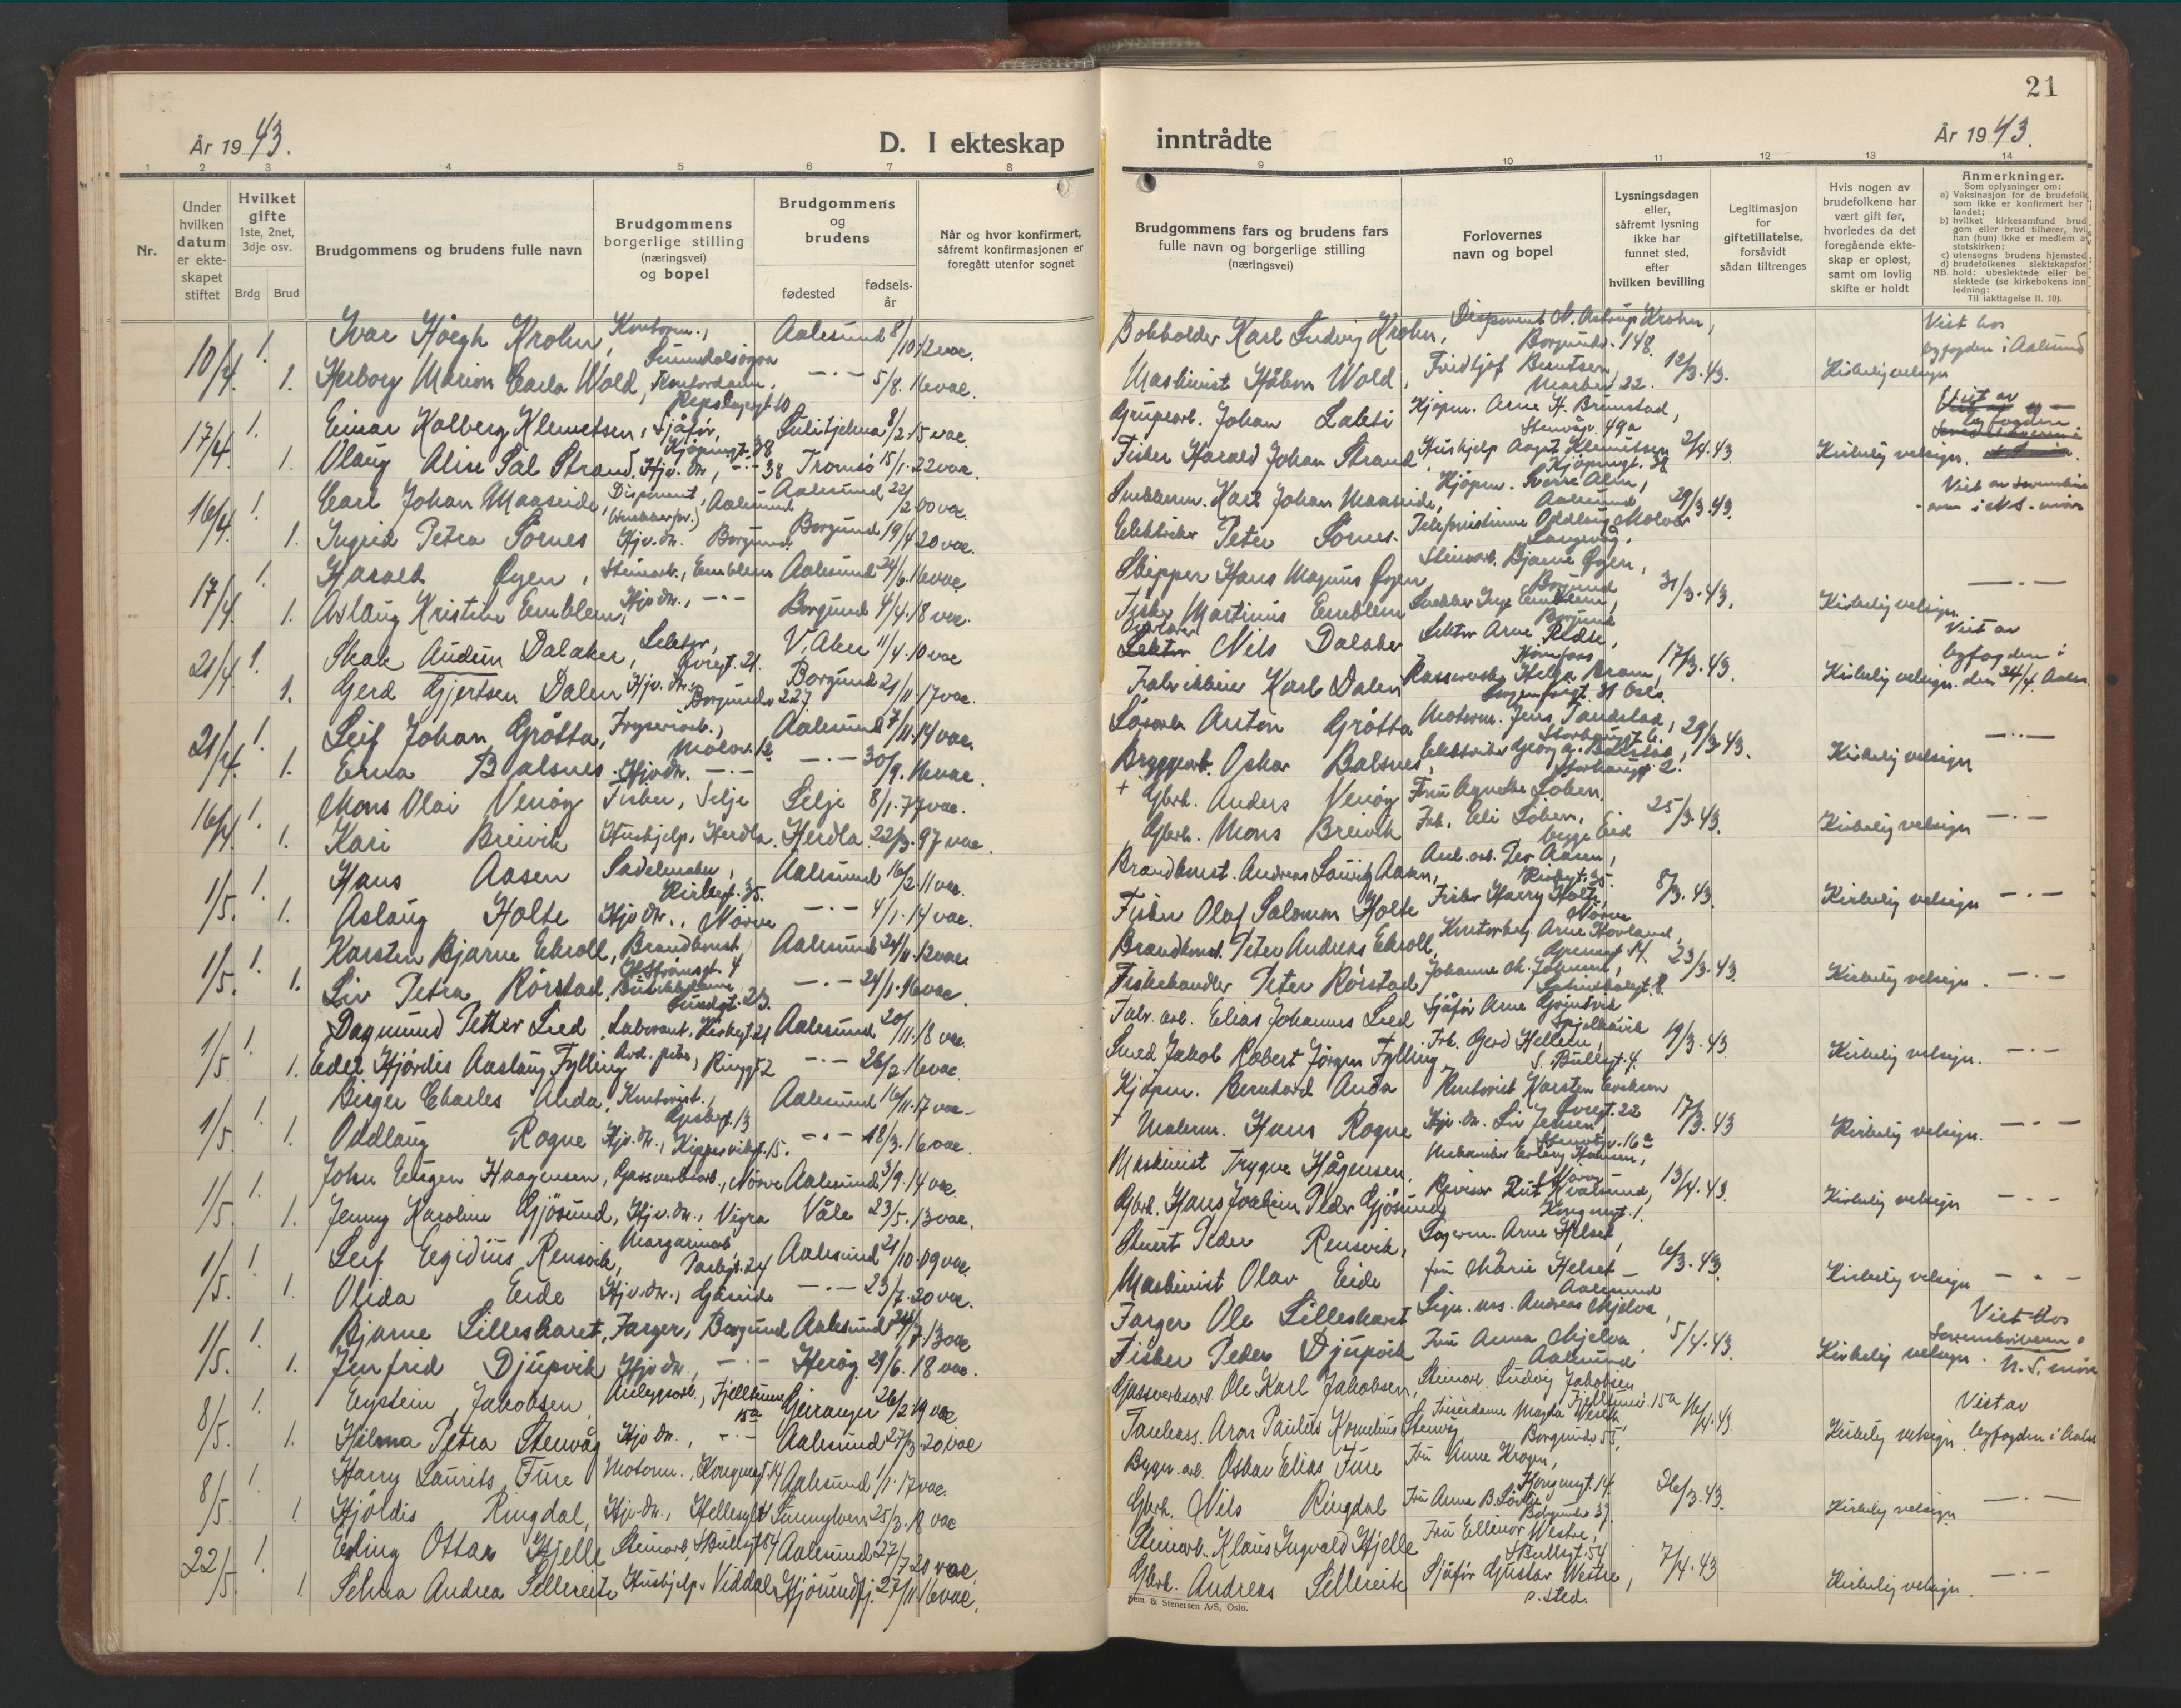 21
År 1943.
D. I ekteskap
inntrådte
År 1943.
1 2 3 4 5 6 7 8 9 10 11 12 13 14
Nr.
Under hvilken datum er ekteskapet stiftet
Hvilket gifte 1ste, 2net, 3dje osv.
Brdg Brud
Brudgommens og brudens fulle navn
Brudgommens borgerlige stilling (næringsvei) og bopel
Brudgommens og brudens
fødested
fødsels-år
Når og hvor konfirmert, såfremt konfirmasjonen er foregått utenfor sognet
Brudgommens fars og brudens fars fulle navn og borgerlige stilling (næringsvei)
Forlovernes navn og bopel
Lysningsdagen eller, såfremt lysning ikke har funnet sted, efter hvilken bevilling
Legitimasjon for giftetillatelse, forsåvidt sådan tiltrenges
Hvis nogen av brudefolkene har vært gift før, hvorledes da det foregående ekteskap er opløst, samt om lovlig skifte er holdt
Anmerkninger.
Som oplysninger om:
a) Vaksinasjon for de brudefolk som ikke er konfirmert her i landet;
b) hvilket kirkesamfund brudgom eller brud tilhører, hvis han (hun) ikke er medlem av statskirken;
c) utensogns brudens hjemsted
d) brudefolkenes slektskapsforhold: ubeslektede eller beslektede (se kirkebokens innledning:
Til iakttagelse II. 10).
10/4. 1. Ivar Høegh Krohn, Kontorm., Sunndalsøra Aalesund 8/10 12 vac. Bokholder Karl Ludvig Krohn, Disponent N. Astrup Krohn, Borgundv. 148. 12/3.43. Vist hos byfogden i Aalesund
1. Herborg Marion Carla Wold, Kontordame, Repslagergt. 10 -"- 5/8. 16 vac. Maskinist Håkon Wold, Fridtjof Berntsen, 22. Kirkelig velsign
17/4. 1. Einar Kolberg Klemetsen, Sjåfør, Kjøpmgt. 38 Sulitjelma 8/2.15 vac. Grupearb. Johan Hjøpm. Arne H. Brunstad, Stenvåg. 49a 2/4.43 Vist av byfogden
1. Olaug Alise Sal Strand. Hjv. dtr., -"- 38 Tromsø 15/1.22 vac. Fisker Harald Johan Strand, Hushjelp Aagot Klemetsen Kjøpmgt. 38. Kirkelig velsign.
16/4. 1. Carl Johan Maaseide, Disponent, Aalesund Aalesund 22/2 00 vac. Snekkerm. Karl Johan Maaseide, Kjøpm. Sverre Alm, Aalesund 29/3.43. Vist av sorenskriveren i N.S. møre
1. Ingrid Petra Sørnes Hjv. dtr. Borgund Borgund 19/4 20 vac. Elektriker Peter Sørnes. Telefonistinne Oddlaug Molvær Langevåg.
17/4. 1. Harald Øyen, Steinarb., Emblem Aalesund 24/6.16 vac. Skipper Hans Magnus Øyen, Steinarb. Bjarne Øyen, Borgund 31/3.43. -"-
1. Aslaug Kristine Emblem, Hjv dtr., -"- Borgund 4/4.18 vac. Fisker Martinus Emblem Snekker Inge Emblem, Borgund Kirkelig velsign
21/4 1. Skak Audun Dalaker, Lektor, Øvregt. 21. V. Aker 11/4.10 vac Nils Dalaker Lektor Arne Rødse, 17/3.43. Vist av byfogden i
1. Gerd Gjertsen Dalen Hjv. dtr. Borgundv 227. Borgund 21/11 17 vac. Fabrikkeier Karl Dalen Helga Bram, Oslo Kirkelig velsign. den 24/4. Aales
21/4. 1. Leif Johan Grøtta, Fryseriarb., Molov. 12 Aalesund 7/11.14 vac. Løsarb. Anton Grøtta Motorm. Jens Tandstad, Storhaugt 6. 29/3.43. -"-
1. Erna Balsnes. Hjv dtr. -"- -"- 30/9. 16 vac. Bryggearb. Oskar Balsnes, Elektriker Georg A. Balsnes, Storhaugt. 2. Kirkelig velsign
16/4 1. Mons Olai Venøy Fisker, Selje Selje 8/1.77 vac. + Gbrk. Anders Venøy Fru Agnethe Løken, 25/3.43. -"-
1. Kari Breivik Hushjelp, Herdla. Herdla. 22/3.97 vac. Gbrk. Mons Breivik Frk. Eli Løken, begge Eid Kirkelig velsign
1/5. 1. Hans Aasen Sadelmaker, Kirkegt. 35. Aalesund 16/2.11 vac. Brandkonst. Andreas Lauritz Aasen, Anl. arb. Per Aasen, Kirkegt. 35. 8/3.43. -"-
1. Aslaug Holte Hjv dtr., Nørve -"- 4/1.14 vac. Fisker Olaf Salomon Holte Fisker Harry Holte, Nørve Kirkelig velsign
1/5. 1. Karsten Bjarne Ekroll, Brandkonst. Aalesund 24/11.12 vac. Brandkonst. Peter Andreas Ekroll, Kontorbest. Arne Hovland, 23/3.43.
1. Liv Petra Rørstad, Butikkdame Sundgt. 23. -"- 24/1.16 vac. Fiskehandler Peter Rørstad, Johanne M. Johnsen, Kirkelig velsign. -"-
1/5 1. Dagmund Petter Lied, Laborant, Kirkegt. 21 Aalesund 20/11.18 vac. Fabr. arb. Elias Johannes Lied Sjåfør Arne Grindvik Spjelkavik 19/3.43.
1. Edel Hjørdis Aaslaug Fylling Avd. , Ringgt 52 -"- 26/2.16 vac. Smed Jakob Robert Jørgen Fylling Frk. Gerd Hellem, S. Bullsgt. 4. Kirkelig velsign. -"-
1/5 1. Birger Charles Anda, Kontorist., Aalesund 16/11.17 vac. Kjøpm. Bernhard Anda Kontorist Karsten Eriksen Øvregt. 22 17/3.43
1. Oddlaug Rogne Hjv. dtr., Kippervikgt. 15. -"- 18/3.16 vac. + Malerm. Hans Rogne Hjv. dtr. Liv Jensen, 16a Kirkelig velsign. -"-
1/5. 1. John Eugen Haagensen, Gassverksarb., Nørve Aalesund 3/9.14 vac. Maskinist Trygve Hågensen, Mekaniker Erling Hansen, Nørve 13/4.43.
1. Jenny Karoline Gjøsund, Hjv. dtr., Vigra Våle 23/5.13 vac. Gbrk. Hans Joakim Peder Gjøsund Revisor Kvalsund, Kongensgt. 1. Kirkelig velsign -"-
1/5. 1. Leif Egidius Rensvik, Margarinarb, Parkgt. 24 Aalesund 21/10 09 vac. Stuert Peder Rensvik, Lagerm. Arne Helset, 6/3.43.
1. Olida Eide Hjv. dtr., Gåseide -"- 23/7.20 vac. Maskinist Olav Eide fru Marie Helset Aalesund Kirkelig velsign -"-
1/5. 1. Bjarne Lilleskaret, Farger, Borgund Aalesund 24/7.13 vac Farger Ole Lilleskaret Andreas Mjelva, 5/4.43. Vist hos Sorenskriveren i N. S. møre
1. Jenfrid Djupvik Hjv dtr., -"- Herøy 29/6.18 vac. Fisker Peder Djupvik Fru Anna Mjelva Aalesund Kirkelig velsign.
8/5. 1. Eystein Jakobsen, Anleggsarb., Fjelltunvn 15a Geiranger 26/2 19 vac Gassverksarb. Ole Karl Jakobsen, Steinarb. Ludvig Jakobsen Fjelltunv. 15a 16/4.43. Vist av byfogden i Aales
1. Hilma Petra Stenvåg Hjv dtr., -"- Aalesund 27/3.20 vac Aron Paulus Kornelius Stenvåg Frisérdame Magda Weseth, Borgundv 55. Kirkelig velsign
8/5. 1. Harry Laurits Fure Motorm., Kongensgt. 14 Aalesund 1/1.17 vac. Bygn. arb. Oskar Elias Fure Fru Anne Krogen, Kongensgt. 14. 26/3.43.
1. Hjøldis Ringdal, Hjv. dtr., Hellesylt Sunnylven 25/3.18 vac Gbrk. Nils Ringdal Fru Anne B. Løvlie Borgundv 39. Kirkelig velsign. -"-
22/5. 1. Erling Ottar Hjelle Steinarb, S. Bullsgt 54 Aalesund 27/7.20 vac. Steinarb. Klaus Ingvald Hjelle Fru Ellinor Westre, S Bullsgt. 54 7/4.43
1. Selma Andrea Sellereite Hushjelp, Viddal Hjørundfj. 27/11.16 vac. Gbrk. Andreas Sellereite Sjåfør Gustav Westre, s. sted. Kirkelig velsign. -"-
Sem & Stenersen A/S, Oslo.